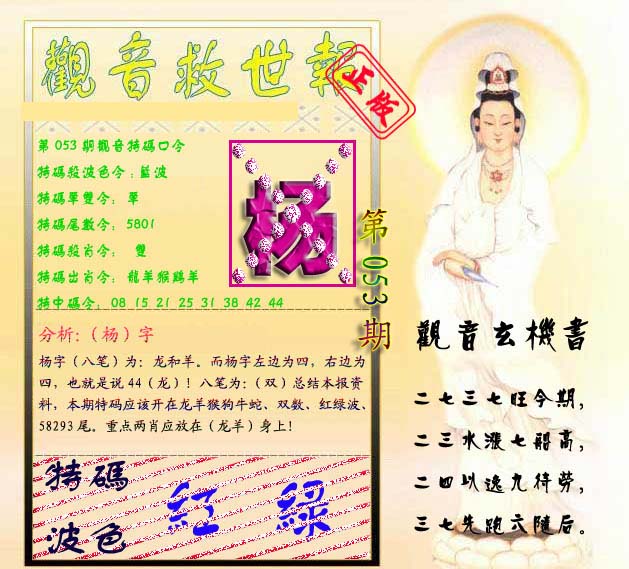 觀音救世報
正版
第053期觀音特碼口令
特碼殺波色令:藍波
特碼單雙令: 單
特碼尾數令: 5801
特碼殺肖令: 雙
特碼出肖令: 龍羊猴鷄羊
特中碼令: 08 15 21 25 31 38 42 44
杨
第053期
分析:(杨)字
杨字(八笔)为:龙和羊。而杨字左边为四,右边为
四,也就是说44(龙)!八笔为:(双)总结本报资
料,本期特码应该开在龙羊猴狗牛蛇、双数、红绿波、
58293尾。重点两肖应放在(龙羊)身上!
特碼
波色
紅 綠
觀音玄機書
二七三七旺今期,
二三水漲七船高,
二四以逸九待勞,
三七先跑六隨后。